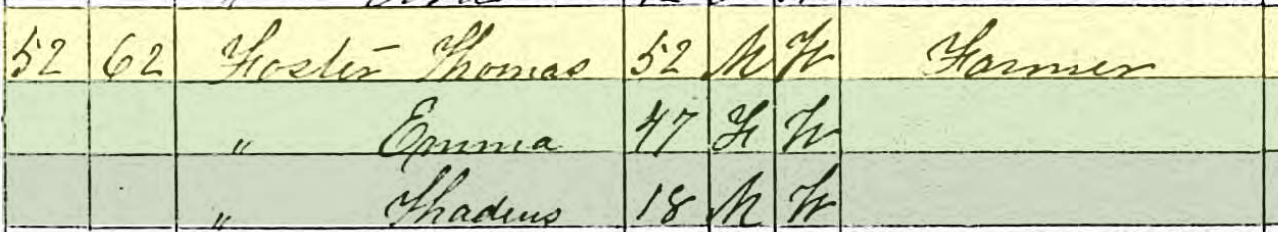 52 62 Foster Thomas 52 M W Farmer
" Emma 47 F W
" Thadeus 18 M W